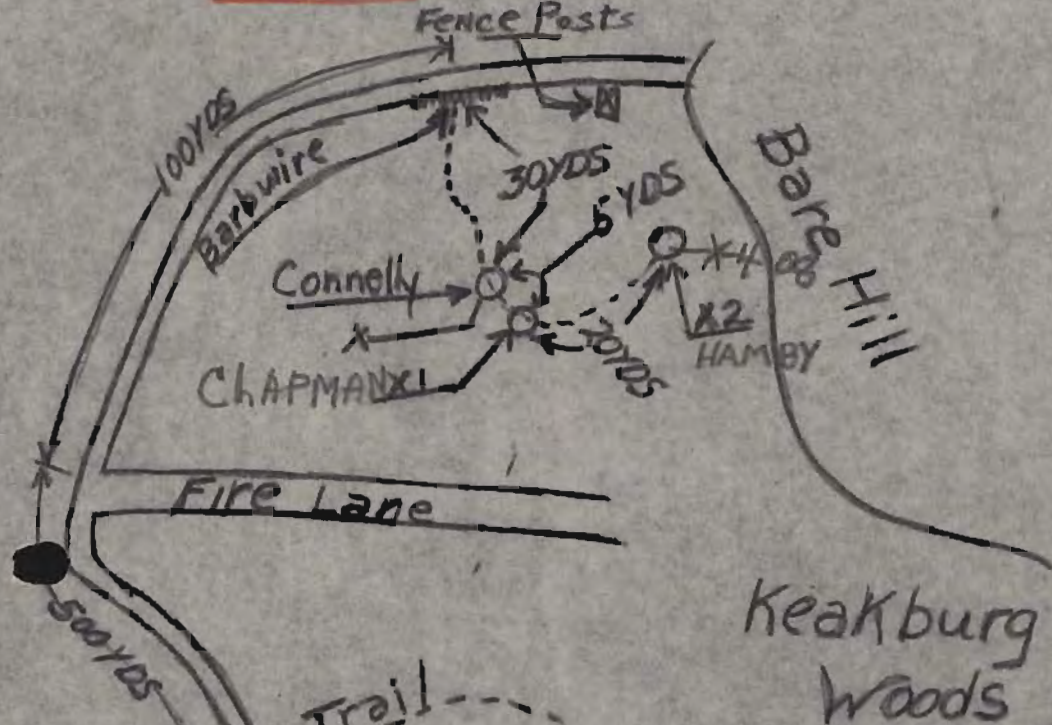 Fence Posts
100YDS
Barbwire
30YDS
5 YDS
Bare Hill
Connelly
X
ChAPMAN X1
70YDS
X2
HAMBY
Fire Lane
500YDS
Keakburg
Woods
Trail